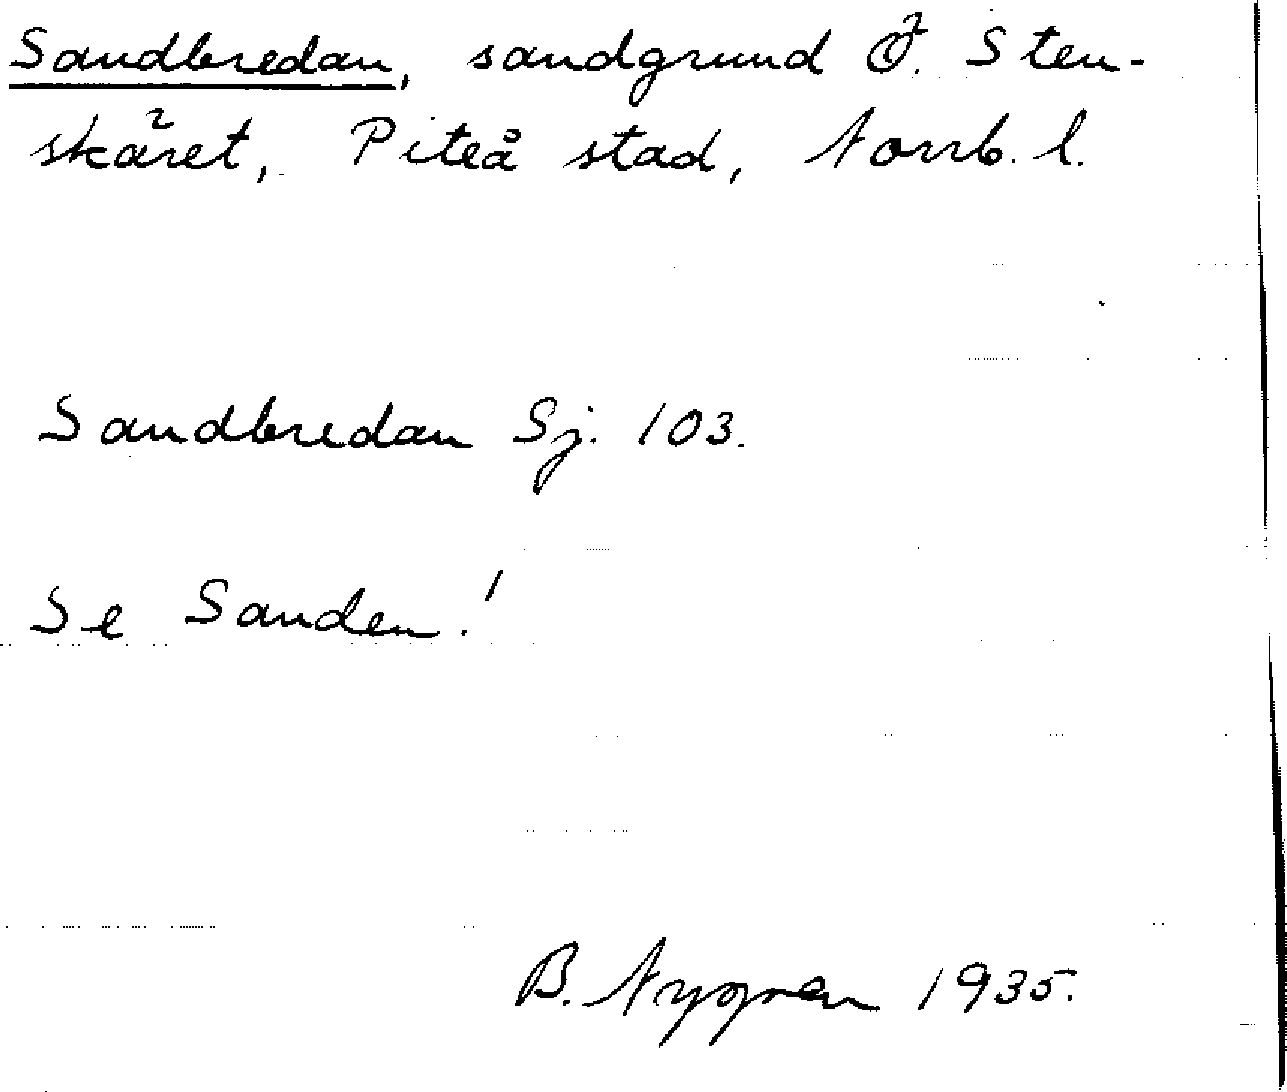 Sandbredan, sandgrund Ö. Sten-
skäret, Piteå stad, Norrb. l.
Sandbredan Sj. 103.
Se Sanden!
B. Nygren 1935.